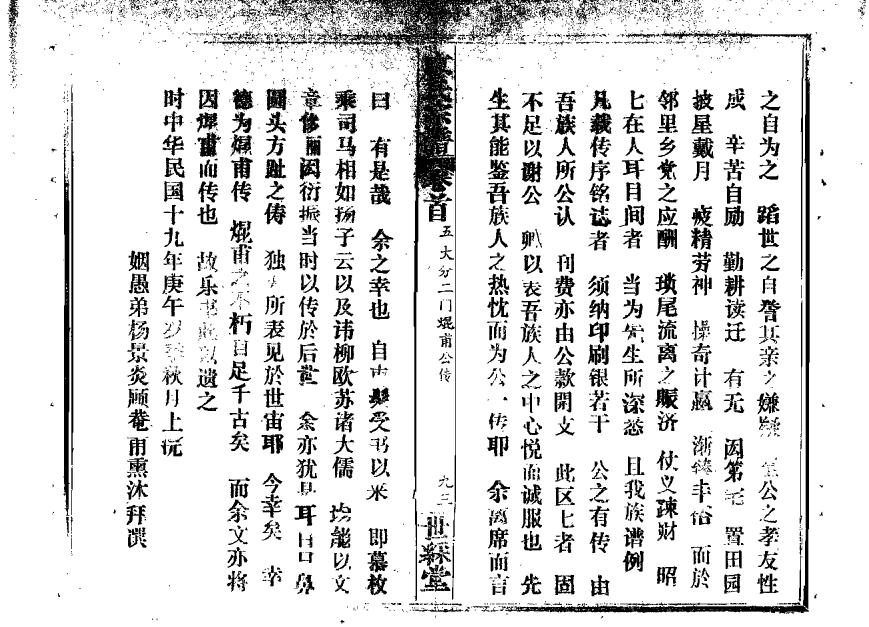 之自为之 蹈世之自誉其亲之嫌疑 公之孝友性
成 辛苦自励 勤耕读迁 有无 因第宅 置田园
披星戴月 疲精劳神 操奇计赢 渐臻丰裕 而於
邻里乡党之应酬 琐尾流离之赈济 仗义疎财 昭
七在人耳目间者 当为先生所深悉 且我族谱例
凡载传序铭志者 须纳印刷银若干 公之有传 由
吾族人所公认 刊费亦由公款開支 此区七者 固
不足以谢公 以表吾族人之中心悦而诚服也 先
生其能鉴吾族人之热忱而为公一传耶 余离席而言
卷首 五大分二门焜甫公传 九三 世綵堂
曰 有是哉 余之幸也 自 受书以来 即慕枚
乘司马相如扬子云以及韩柳欧苏诸大儒 均能以文
章修 因衍振当时以传於后世 余亦犹是耳目口鼻
圆头方趾之俦 独 所表见於世宙耶 今幸矣 幸
德为焜甫传 焜甫之不朽自足千古矣 而余文亦将
因焜甫而传也 故乐书 以遗之
时中华民国十九年庚午 秋月上浣
姻愚弟杨景炎顾菴甫熏沐拜撰